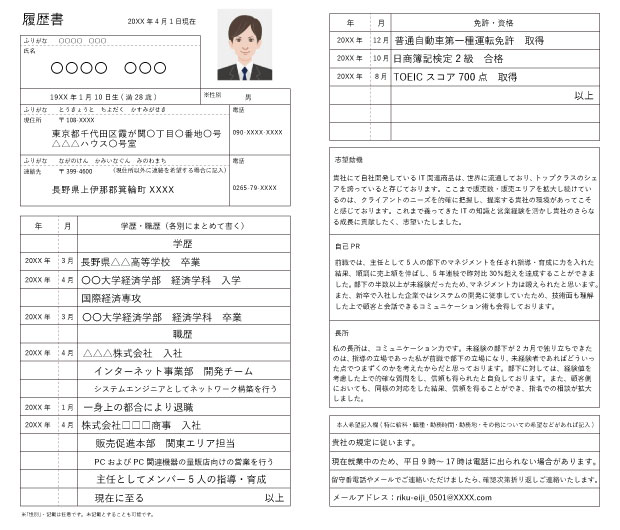 履歴書
20XX 年 4 月 1 日現在
ふりがな 〇〇〇〇 〇〇〇
氏名
〇〇〇〇 〇〇〇
19XX 年 1 月 10 日生 ( 満 28 歳 )
※性別 男
ふりがな とうきょうと ちよだく かすみがせき
電話
現住所 〒108-XXXX
東京都千代田区霞が関〇丁目〇番地〇号
△△△ハウス〇号室
090-XXXX-XXXX
ふりがな ながのけん かみいなぐん みのわまち
電話
連絡先 〒399-4600 (現住所以外に連絡を希望する場合に記入)
長野県上伊那郡箕輪町 XXXX
0265-79-XXXX
年 月 学歴・職歴（各別にまとめて書く）
学歴
20XX 年 3 月 長野県△△高等学校 卒業
20XX 年 4 月 〇〇大学経済学部 経済学科 入学
国際経済専攻
20XX 年 3 月 〇〇大学経済学部 経済学科 卒業
職歴
20XX 年 4 月 △△△株式会社 入社
インターネット事業部 開発チーム
システムエンジニアとしてネットワーク構築を行う
20XX 年 1 月 一身上の都合により退職
20XX 年 4 月 株式会社□□□商事 入社
販売促進本部 関東エリア担当
PC および PC 関連機器の量販店向けの営業を行う
主任としてメンバー 5 人の指導・育成
現在に至る 以上
※「性別」：記載は任意です。未記載とすることも可能です。
年 月 免許・資格
20XX 年 12 月 普通自動車第一種運転免許 取得
20XX 年 10 月 日商簿記検定 2 級 合格
20XX 年 8 月 TOEIC スコア 700 点 取得
以上
志望動機
貴社にて自社開発している IT 関連商品は、世界に流通しており、トップクラスのシェ
アを誇っていると存じております。ここまで販売数・販売エリアを拡大し続けてい
るのは、クライアントのニーズを的確に把握し、提案する貴社の環境があってこそ
と感じております。これまで養ってきた IT の知識と営業経験を活かし貴社のさらな
る成長に貢献したく、志望いたしました。
自己 PR
前職では、主任として 5 人の部下のマネジメントを任され指導・育成に力を入れた
結果、順調に売上額を伸ばし、5 年連続で昨対比 30%超えを達成することができま
した。部下の半数以上が未経験だったため、マネジメント力は鍛えられたと思います。
また、新卒で入社した企業ではシステムの開発に従事していたため、技術面も理解
した上で顧客と会話できるコミュニケーション術も会得しております。
長所
私の長所は、コミュニケーション力です。未経験の部下が 2 カ月で独り立ちできた
のは、指導の立場であった私が前職で部下の立場になり、未経験者であればどういっ
た点でつまずくのかを考えたからだと思っております。部下に対しては、経験値を
考慮した上での的確な質問をし、信頼も得られたと自負しております。また、顧客側
においても、同様の対応をした結果、信頼を得ることができ、指名での相談が拡大
しました。
本人希望記入欄 ( 特に給料・職種・勤務時間・勤務地・その他についての希望などがあれば記入 )
貴社の規定に従います。
現在就業中のため、平日 9 時～ 17 時は電話に出られない場合があります。
留守番電話やメールでご連絡いただけましたら、確認次第折り返しご連絡いたします。
メールアドレス：riku-eiji_0501@XXXX.com